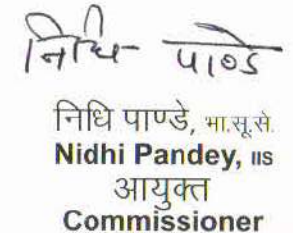 निधि पाण्डे
निधि पाण्डे, भा.सू.से.
Nidhi Pandey, IIS
आयुक्त
Commissioner